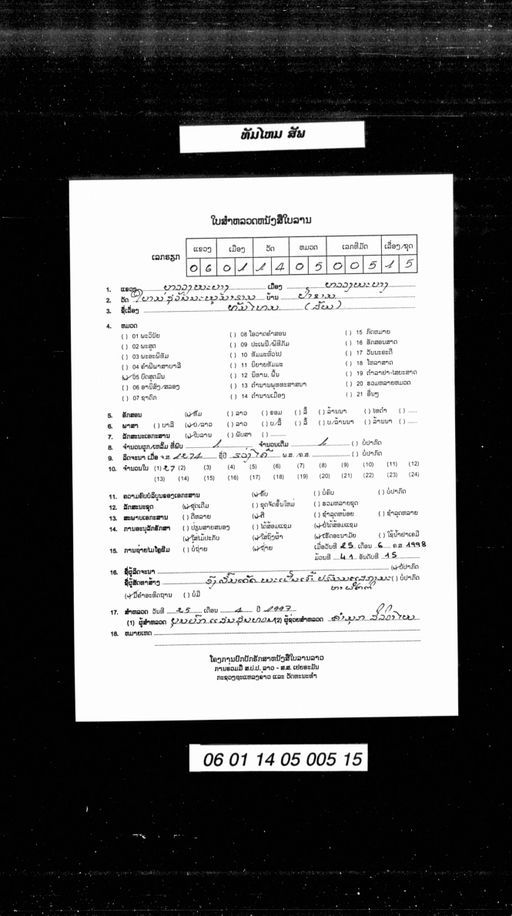 ທັມໂຫມ ສັພ
ໃບສຳຫລວດຫນັງສືໃບລານ
ແຂວງ ເມືອງ ວັດ ຫມວດ ເລກທີມັດ ເລື່ອງ/ຊຸດ
ເລກຣຽກ 0 6 0 1 1 4 0 5 0 0 5 1 5
1. ແຂວງ ຫລວງພະບາງ ເມືອງ ຫລວງພະບາງ
2. ວັດ ບ້ານ
3. ຊື່ເລື່ອງ ທັມໂຫມ (ສັພ)
4. ຫມວດ
( ) 01 ພະວິນັຍ ( ) 08 ໂອວາດຄຳສອນ ( ) 15 ກົດຫມາຍ
( ) 02 ພະສູດ ( ) 09 ປະເພນີ/ພິທີກັມ ( ) 16 ອັກສອນສາດ
( ) 03 ພະອະພິທັມ ( ) 10 ທັມມະທົ່ວໄປ ( ) 17 ວັນນະຄະດີ
( ) 04 ຄຳພີພາສາບາລີ ( ) 11 ນິຍາຍທັມມະ ( ) 18 ໂຫລາສາດ
(✓) 05 ບົດສູດມົນ ( ) 12 ນິທານ, ພື້ນ ( ) 19 ຕຳລາຢາ/ໄສຍະສາດ
( ) 06 ອານິສົງ/ສລອງ ( ) 13 ຕຳນານພຸທທະສາສນາ ( ) 20 ຮວມຫລາຍຫມວດ
( ) 07 ຊາດົກ ( ) 14 ຕຳນານເມືອງ ( ) 21 ອື່ນໆ
5. ອັກສອນ (✓) ທັມ ( ) ລາວ ( ) ຂອມ ( ) ລື້ ( ) ລ້ານນາ ( ) ໄທດຳ ( ) .....
6. ພາສາ ( ) ບາລີ (✓) ບ/ລາວ ( ) ລາວ ( ) ບ/ລື້ ( ) ລື້ ( ) ບ/ລ້ານນາ ( ) ລ້ານນາ ( ) .....
7. ລັກສນະເອກະສານ (✓) ໃບລານ ( ) ພັບສາ ( ) .........
8. ຈຳນວນຜູກ/ເຫລັ້ມ ທີ່ພົບ 1 ຈຳນວນເຕັມ 1 ( ) ບໍ່ປາກົດ
9. ລິດຈະນາ ເມື່ອ ຈ.ສ. 1274 ຊຶ່ງປີ ພ.ສ./ຄ.ສ. ( ) ບໍ່ປາກົດ
10. ຈຳນວນໃບ (1) 27 (2) (3) (4) (5) (6) (7) (8) (9) (10) (11) (12)
(13) (14) (15) (16) (17) (18) (19) (20) (21) (22) (23) (24)
11. ຄວາມຄົບບໍລິບູນຂອງເອກະສານ (✓) ຄົບ ( ) ບໍ່ຄົບ ( ) ບໍ່ປາກົດ
12. ລັກສນະຊຸດ (✓) ຊຸດເດີມ ( ) ຊຸດຈັດຂຶ້ນໃຫມ່ ( ) ຮວມຫລາຍຊຸດ
13. ສະພາບເອກະສານ ( ) ດີຫລາຍ (✓) ດີ ( ) ຊຳລຸດຫນ້ອຍ ( ) ຊຳລຸດຫລາຍ
14. ການອະນຸລັກຮັກສາ ( ) ປ່ຽນສາຍສນອງ ( ) ໄດ້ສ້ອມແຊມ (✓) ບໍ່ໄດ້ສ້ອມແຊມ
(✓) ໃສ່ໄມ້ປະກັບ (✓) ໃສ່ຖົງຜ້າ (✓) ເຮັດອະນາມັຍ ( ) ໃຊ້ນ້ຳຢາເຄມີ
15. ການຖ່າຍໄມໂຄຣຟິມ ( ) ບໍ່ຖ່າຍ (✓) ຖ່າຍ ເມື່ອວັນທີ 25 ເດືອນ 6 ຄ.ສ 1998
ມ້ວນທີ 41 ອັນດັບທີ 15
16. ຊື່ຜູ້ລິດຈະນາ (✓) ບໍ່ປາກົດ
ຊື່ຜູ້ສັດທາສ້າງ ( ) ບໍ່ປາກົດ
(✓) ມີຄຳອະທິດຖານ ( ) ບໍ່ມີ
17. ສຳຫລວດ ວັນທີ 25 ເດືອນ 4 ປີ 1997
(1) ຜູ້ສຳຫລວດ (2) ຜູ້ຊ່ວຍສຳຫລວດ
18. ຫມາຍເຫດ
ໂຄງການປົກປັກຮັກສາຫນັງສືໃບລານລາວ
ການຮ່ວມມື ສ.ປ.ປ.ລາວ - ສ.ສ. ເຢຍຣະມັນ
ກະຊວງຖະແຫລງຂ່າວ ແລະ ວັດທະນະທຳ
06 01 14 05 005 15